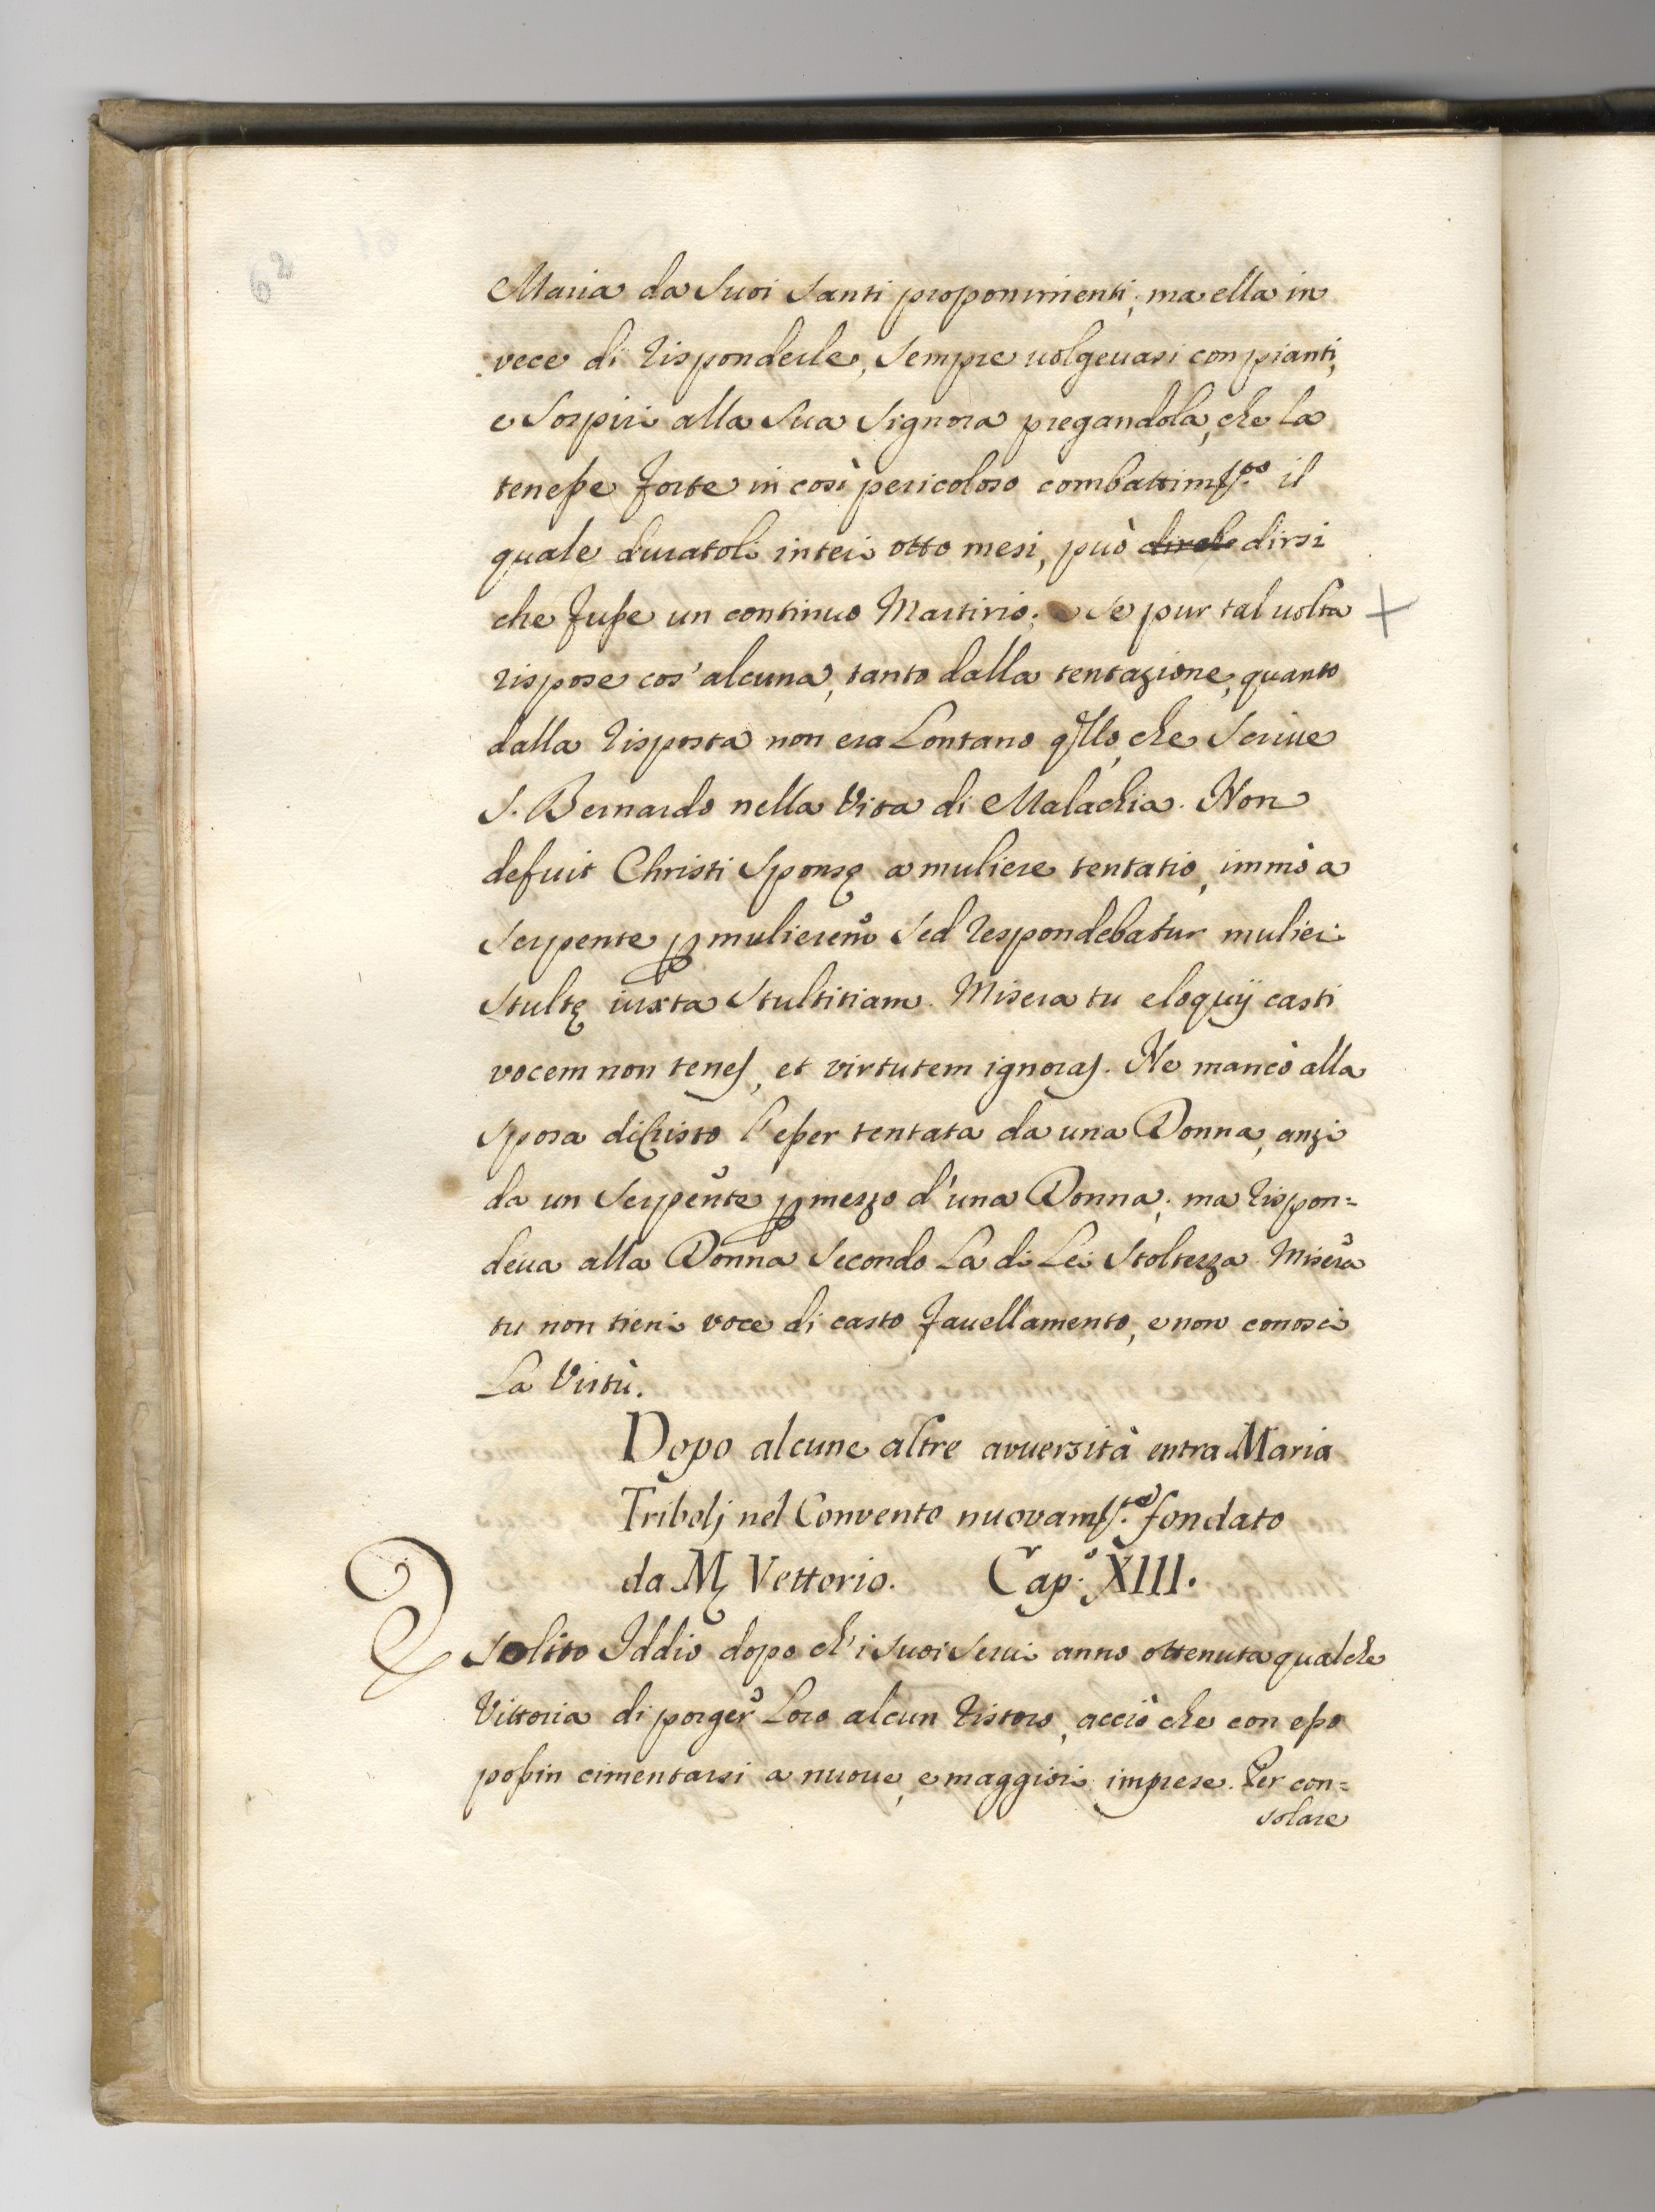 62
Maria da Suoi Santi proponimenti; ma ella in
vece di risponderle, sempre uolgeuasi con pianti,
e Sospiri alla Sua Signora pregandola, che la
tenesse forte in così pericoloso combattimto. il
quale duratoli interi otto mesi, può dirsi
che fusse un continuo Martirio; e Se pur tal uolta +
rispose cos' alcuna, tanto dalla tentazione, quanto
dalla risposta non era Lontano qllo, che Scriue
S. Bernardo nella Vita di Malachia. Non
defuit Christi Sponsę a muliere tentatio, immò a
Serpente ꝑ mulierem Sed respondebatur mulieri
Stultę iuxta Stultitiam. Misera tu eloquij casti
vocem non tenes, et virtutem ignoras. Ne mancò alla
Sposa di Christo l'esser tentata da una Donna, anzi
da un Serpente ꝑ mezzo d'una Donna; ma rispon=
deua alla Donna Secondo La di Lei Stoltezza. Misera
tu non tieni voce di casto fauellamento, e non conosci
La Virtù.
Dopo alcune altre avuersità entra Maria
Tribolj nel Convento nuovamte. fondato
da M Vettorio. Cap.o XIII.
È Solito Iddio dopo ch'i Suoi Serui anno ottenuta qualche
Vittoria di porger Loro alcun ristoro, acciò che con esso
possin cimentarsi a nuoue, e maggiori imprese. Per con=
solare